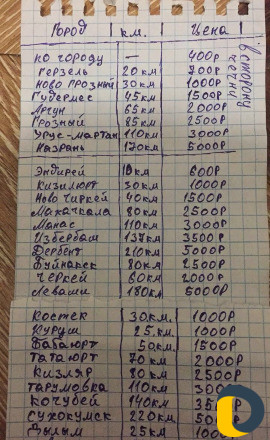 Город км. Цена
по городу — 400р
Герзель 20км 700р
Ново Грозный 30км 1000р
Гудермес 45км 1500р
Аргун 65км 2000р
Грозный 85км 2500р
Урус-Мартан 110км 3000р
Назрань 170км 5000р
в сторону Чечни
Эндирей 10км 600р
Кизилюрт 30км 1000р
Ново Чиркей 40км 1500р
Махачкала 80км 2500р
Манас 110км 3000р
Избербаш 137км 3500р
Дербент 210км 5000р
Буйнакск 80км 2500р
Черкей 60км 2000р
Леваши 180км 5000р
Костек 30км. 1000р
Куруш 25км. 1000р
Бабаюрт 50км. 1500р
Татаюрт 70км 2000р
Кизляр 80км 2500р
Тарумовка 110км
Кочубей 140км
Сухокумск 220км
Дылым 25км